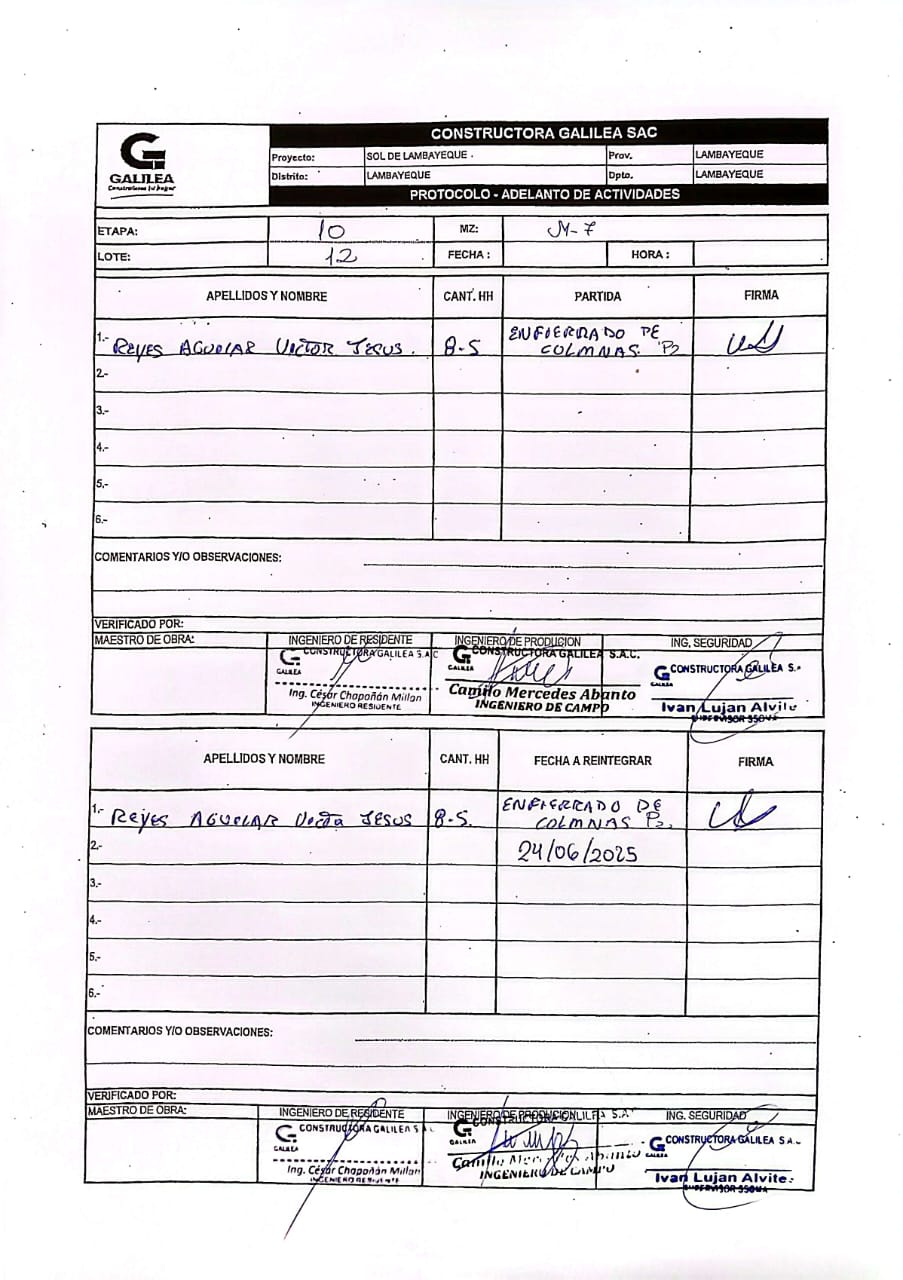 GALILEA
Construimos tu hogar
CONSTRUCTORA GALILEA SAC
Proyecto: SOL DE LAMBAYEQUE . Prov. LAMBAYEQUE
Distrito: LAMBAYEQUE Dpto. LAMBAYEQUE
PROTOCOLO - ADELANTO DE ACTIVIDADES
ETAPA: 10 MZ: M-7
LOTE: 12 FECHA : HORA :
APELLIDOS Y NOMBRE CANT. HH PARTIDA FIRMA
1.- REYES AGUILAR VICTOR JESUS. 8-5 ENFIERRADO DE
COLMNAS P2
2.-
3.-
4.-
5.-
6.-
COMENTARIOS Y/O OBSERVACIONES:
VERIFICADO POR:
MAESTRO DE OBRA: INGENIERO DE RESIDENTE INGENIERO DE PRODUCION ING. SEGURIDAD
CONSTRUCTORA GALILEA S.A.C CONSTRUCTORA GALILEA S.A.C. CONSTRUCTORA GALILEA S.A
GALILEA GALILEA GALILEA
Ing. César Chapoñán Millan Camilo Mercedes Abanto Ivan Lujan Alvite
INGENIERO RESIDENTE INGENIERO DE CAMPO SUPERVISOR SSOMA
APELLIDOS Y NOMBRE CANT. HH FECHA A REINTEGRAR FIRMA
1.- REYES AGUILAR JESUS 8-5. ENFIERRADO DE
COLMNAS P2.
2.- 24/06/2025
3.-
4.-
5.-
6.-
COMENTARIOS Y/O OBSERVACIONES:
VERIFICADO POR:
MAESTRO DE OBRA: INGENIERO DE RESIDENTE INGENIERO DE PRODUCION ING. SEGURIDAD
CONSTRUCTORA GALILEA S. CONSTRUCTORA GALILEA S.A. CONSTRUCTORA GALILEA S A
GALILEA GALILEA GALILEA
Ing. César Chapoñán Millan Camilo Mercedes Abanto Ivan Lujan Alvite
INGENIERO RESIDENTE INGENIERO DE CAMPO SUPERVISOR SSOMA